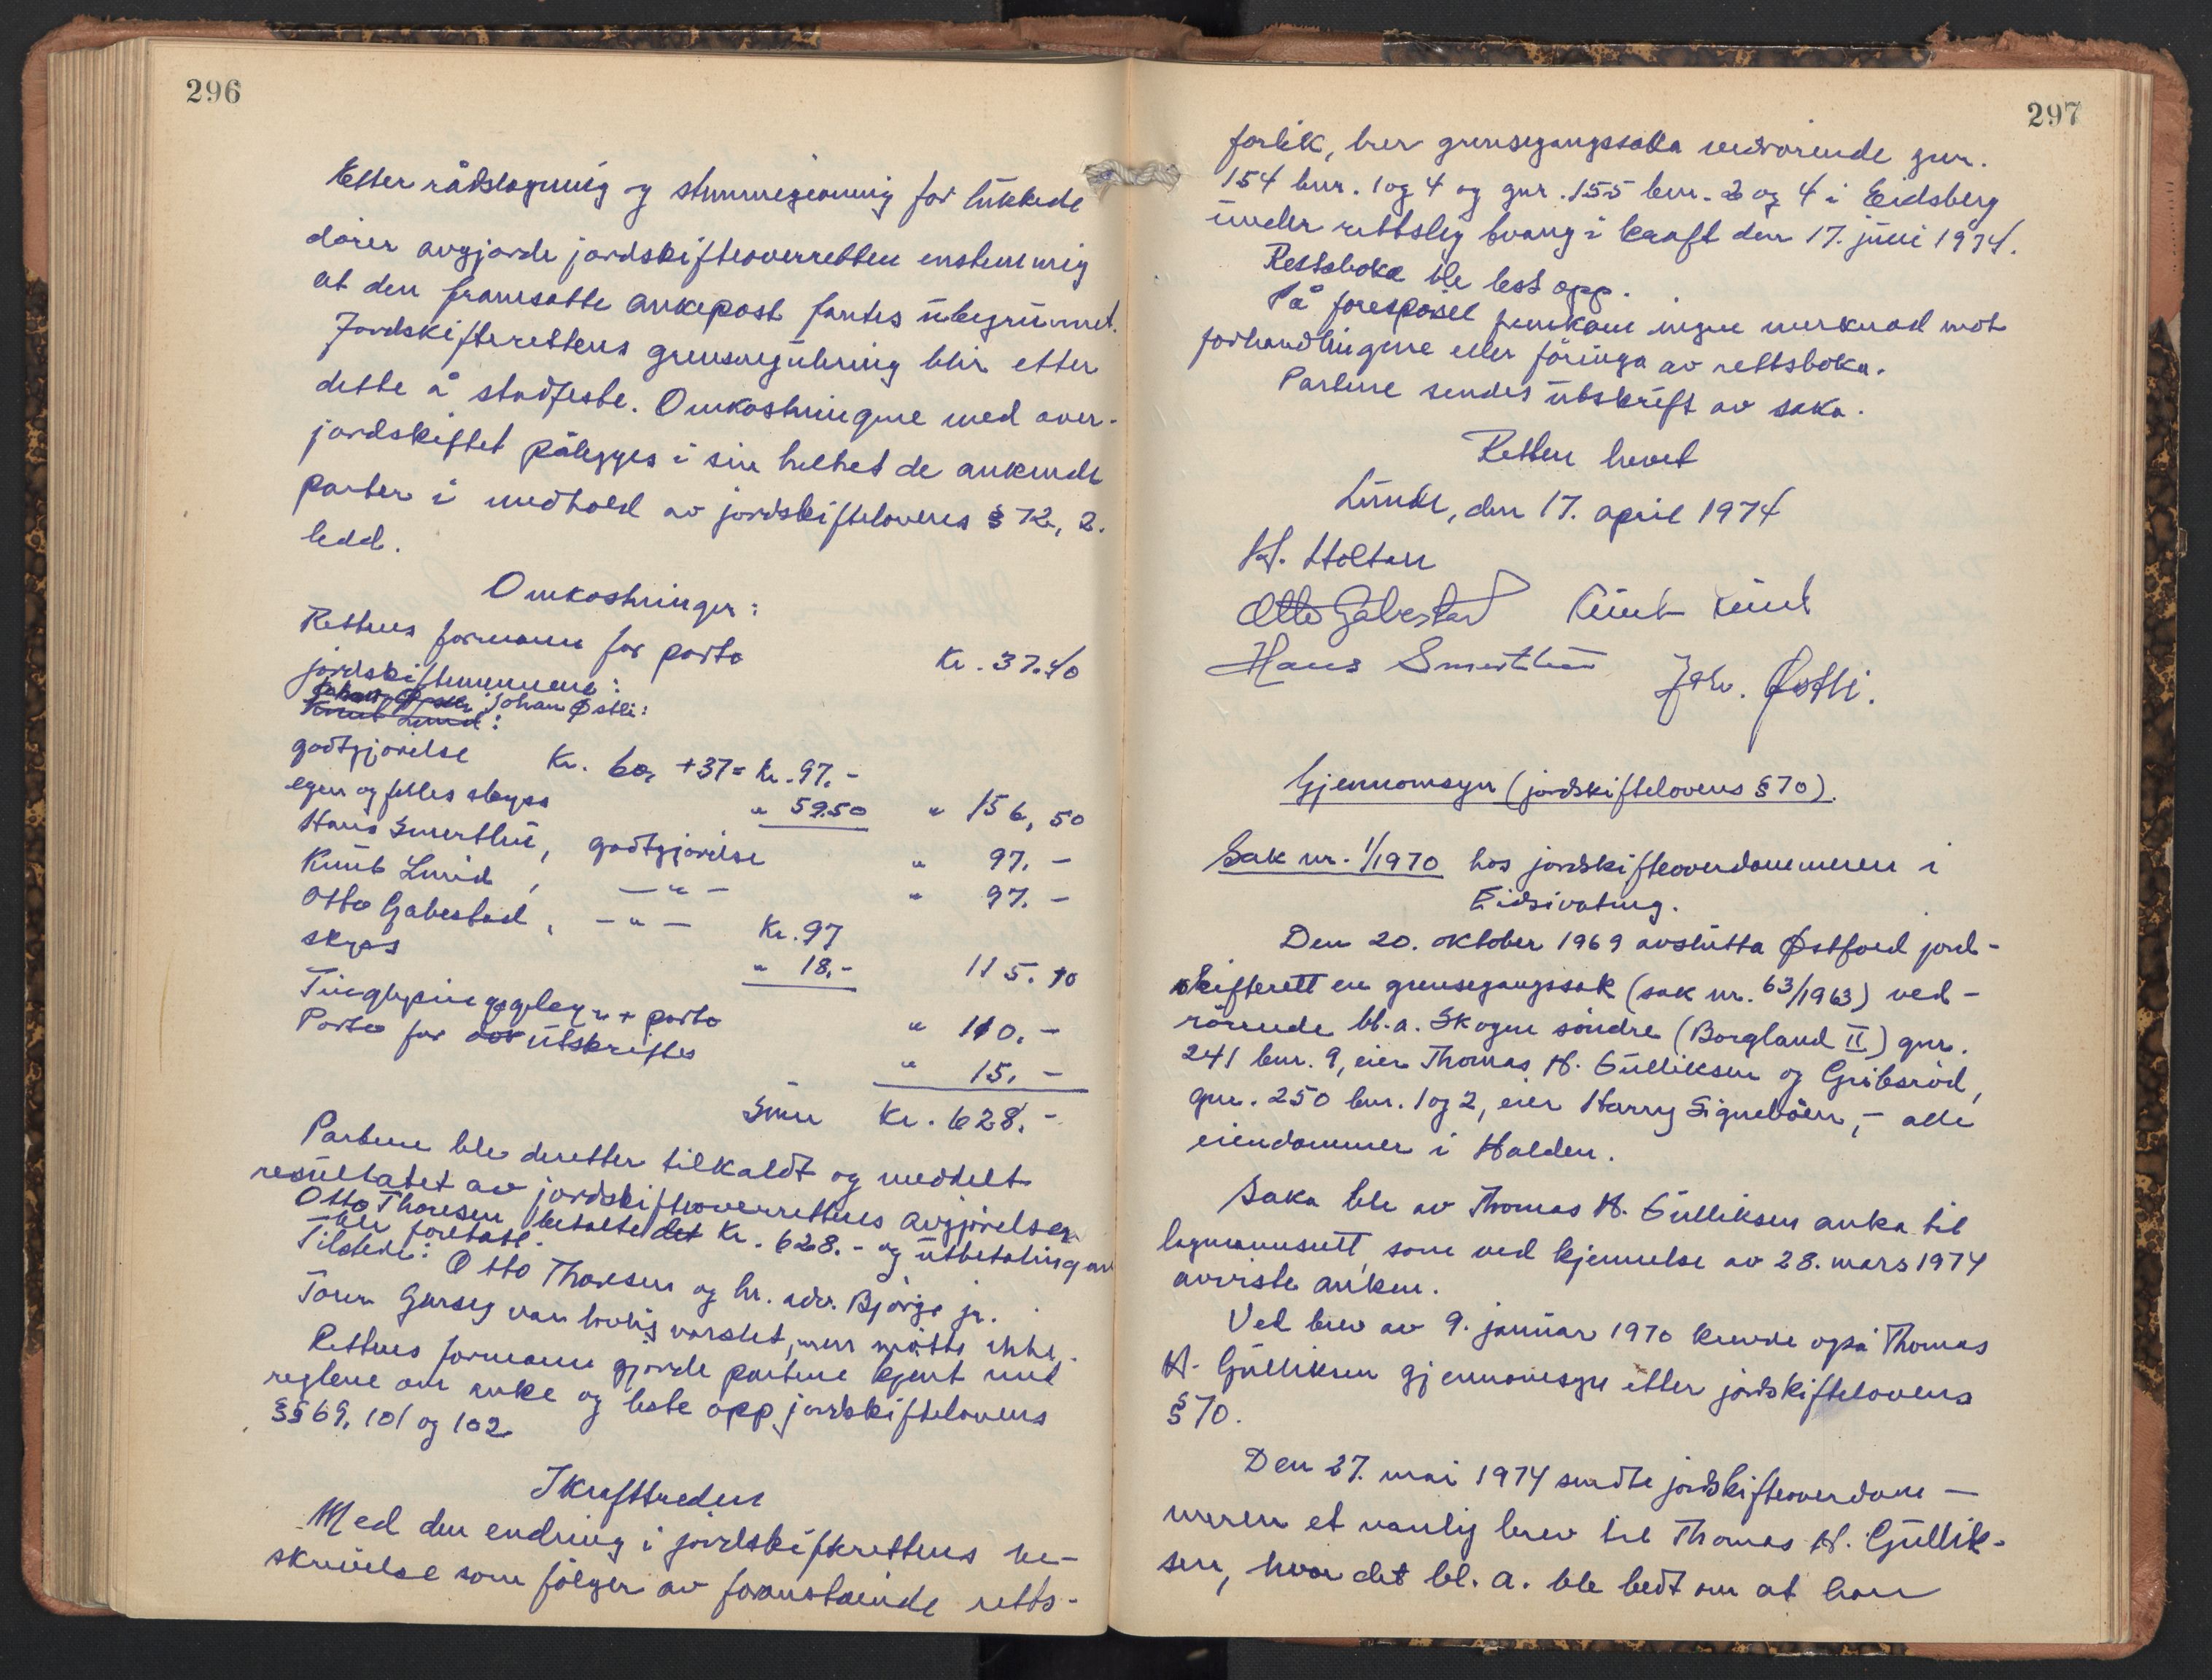 296
Etter rådslagning og stemmegivning for lukkede
dører avgjorde jordskifteoverretten enstemmig
at den framsatte ankepost fantes ubegrunnet.
Jordskifterettens grenseregulering blir etter
dette å stadfeste. Omkostningene med over-
jordskiftet pålegges i sin helhet de ankende
parter i medhold av jordskiftelovens § 72, 2.
ledd.
Omkostninger:
Rettens formann for porto Kr. 37.40
jordskiftemennene:
Johan Østli:
Knut Lund:
godtgjørelse Kr. 60, +37= kr. 97.-
egen og felles skyss " 59.50 " 156,50
Hans Smertlui, godtgjørelse " 97.-
Knut Lund, -"- " 97.-
Otto Gabestad, -"- Kr. 97
skyss " 18.- 115.10
Tinglysingsgebyr + porto " 110.-
Porto for utskrifter " 15.-
Sum Kr. 628.-
Partene ble deretter tilkaldt og meddelt
resultatet av jordskifteoverrettens avgjørelser
Otto Thoresen betalte det kr. 628.- og utbetaling av
ble foretatt.
Tilstede: Otto Thoresen og hr. adv. Bjørge jr.
Toren Garseg var lovlig varslet, men møtte ikke.
Rettens formann gjorde partene kjent med
reglene om anke og leste opp jordskiftelovens
§§ 69, 101 og 102
Ikrafttreden
Med den endring i jordskifterettens be-
skrivelse som følger av foranstående retts-
297
forlik, trer grensegangssaka vedrørende gnr.
154 bnr. 1 og 4 og gnr. 155 bnr. 2 og 4 i Eidsberg
under rettslig tvang i kraft den 17. juni 1974.
Rettsboka ble lest opp.
På forespørsel fremkom ingen merknad mot
forhandlingene eller føringa av rettsboka.
Partene sendes utskrift av saka.
Retten hevet
Lunde, den 17. april 1974
H. Holtan
Otto Gabestad Knut Lund
Hans Smertlui Joh. Østli.
Gjennomsyn (jordskiftelovens § 70).
Sak nr. 1/1970 hos jordskifteoverdommeren i
Eidsivating.
Den 20. oktober 1969 avslutta Østfold jord-
skifterett en grensegangssak (sak nr. 63/1963) ved-
rørende bl.a. Skogen søndre (Borgland II) gnr.
241 bnr. 9, eier Thomas H. Gulliksen og Gribsrød,
gnr. 250 bnr. 1 og 2, eier Harry Signebøen, - alle
eiendommer i Halden.
Saka ble av Thomas H. Gulliksen anka til
lagmannsrett, som ved kjennelse av 28. mars 1974
avviste anken.
Ved brev av 9. januar 1970 krevde også Thomas
H. Gulliksen gjennomsyn etter jordskiftelovens
§ 70.
Den 27. mai 1974 sendte jordskifteoverdom-
meren et vanlig brev til Thomas H. Gullik-
sen, hvor det bl.a. ble bedt om at han